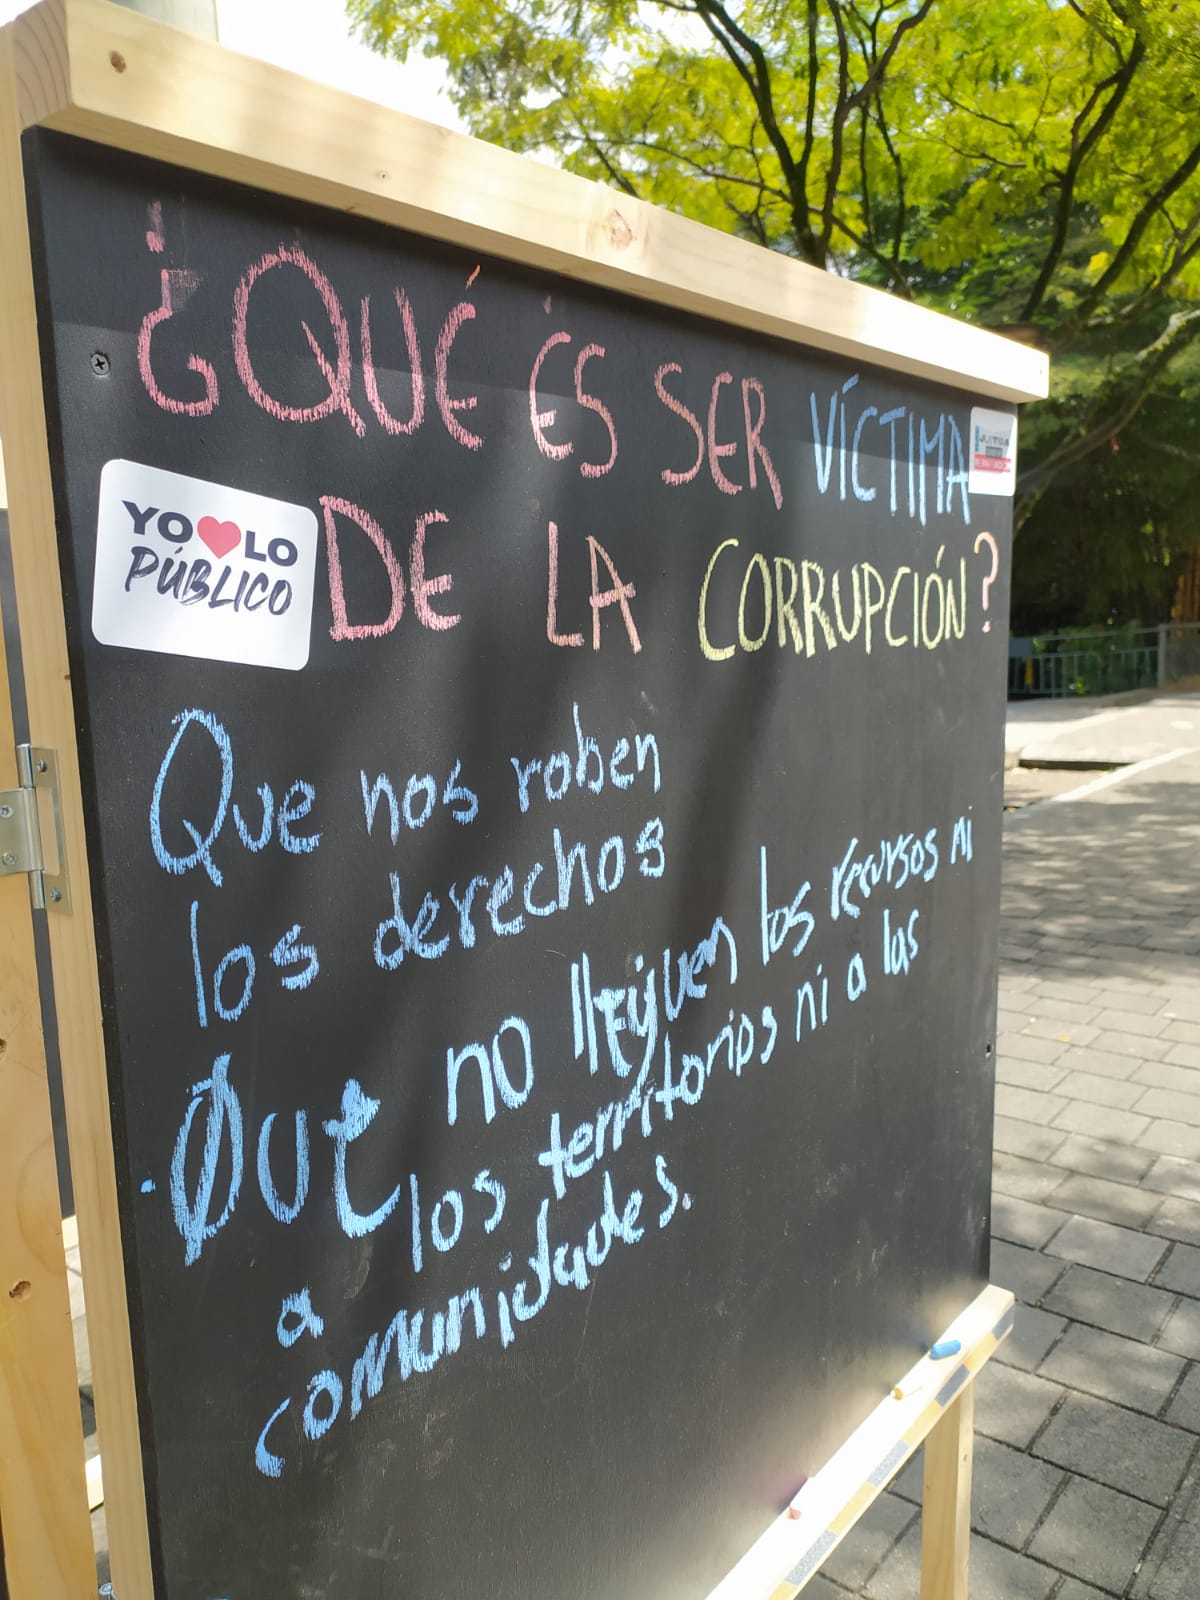 ¿QUÉ ES SER VÍCTIMA
DE LA CORRUPCIÓN?
YO ❤ LO
PÚBLICO
Que nos roben
los derechos
Que no lleguen los recursos ni
a los territorios ni a las
comunidades.